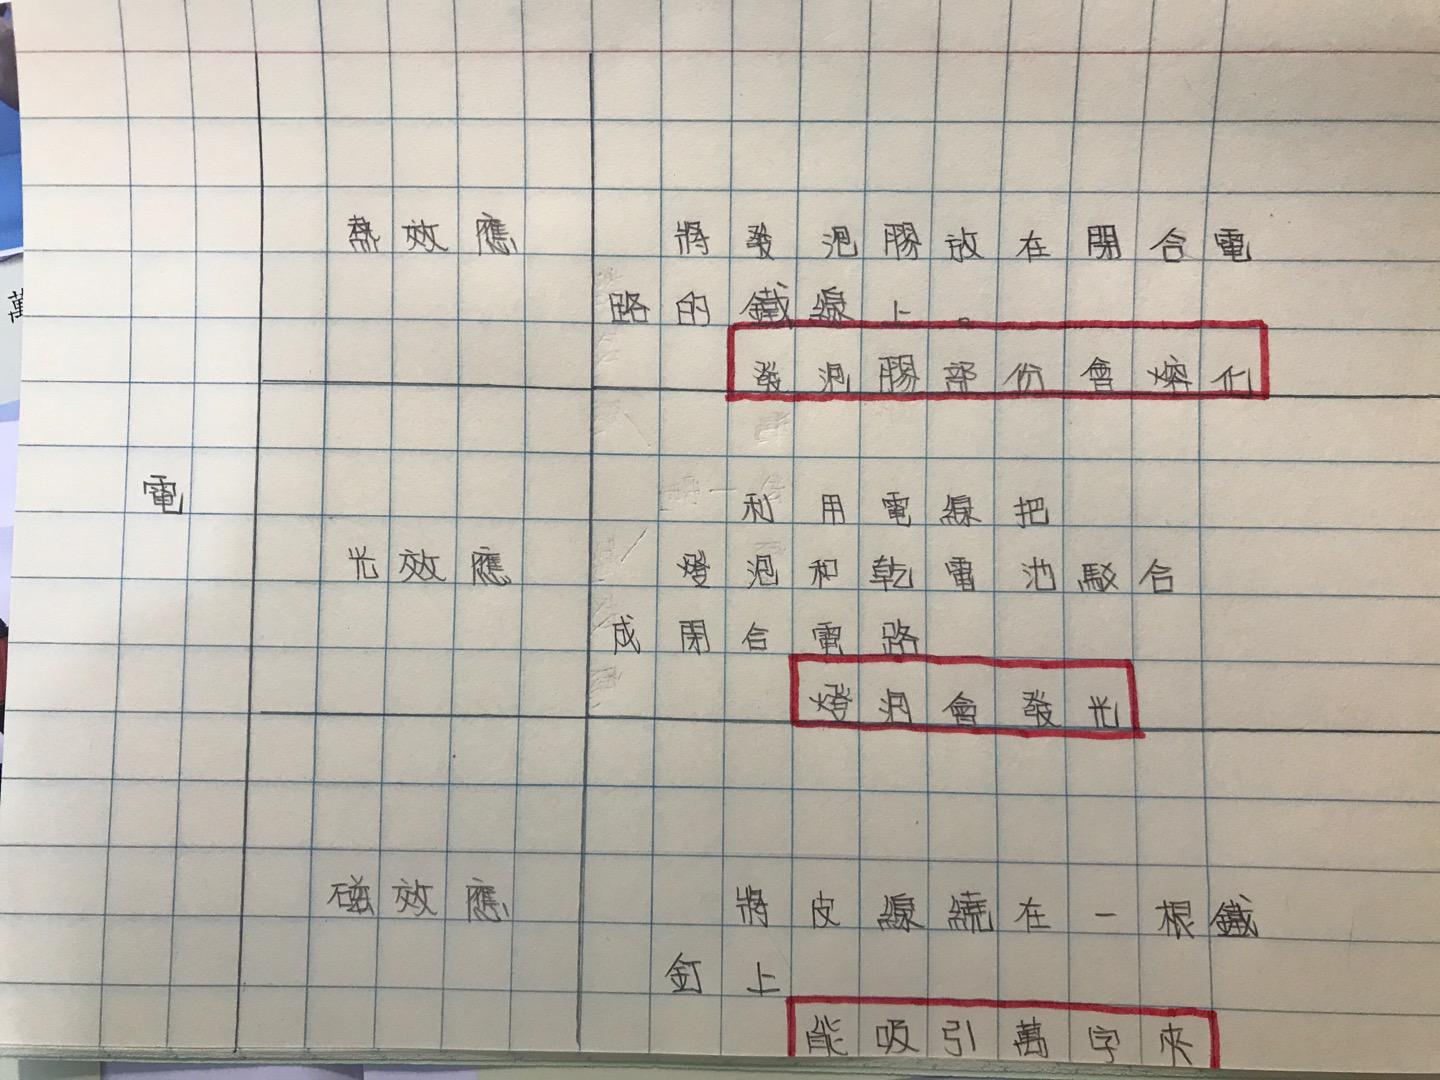 萬
電
熱效應
將發泡膠放在閉合電
路的鐵線上。
發泡膠部份會熔化
光效應
利用電線把
燈泡和乾電池駁合
成閉合電路
燈泡會發光
磁效應
將皮線繞在一根鐵
釘上
能吸引萬字夾